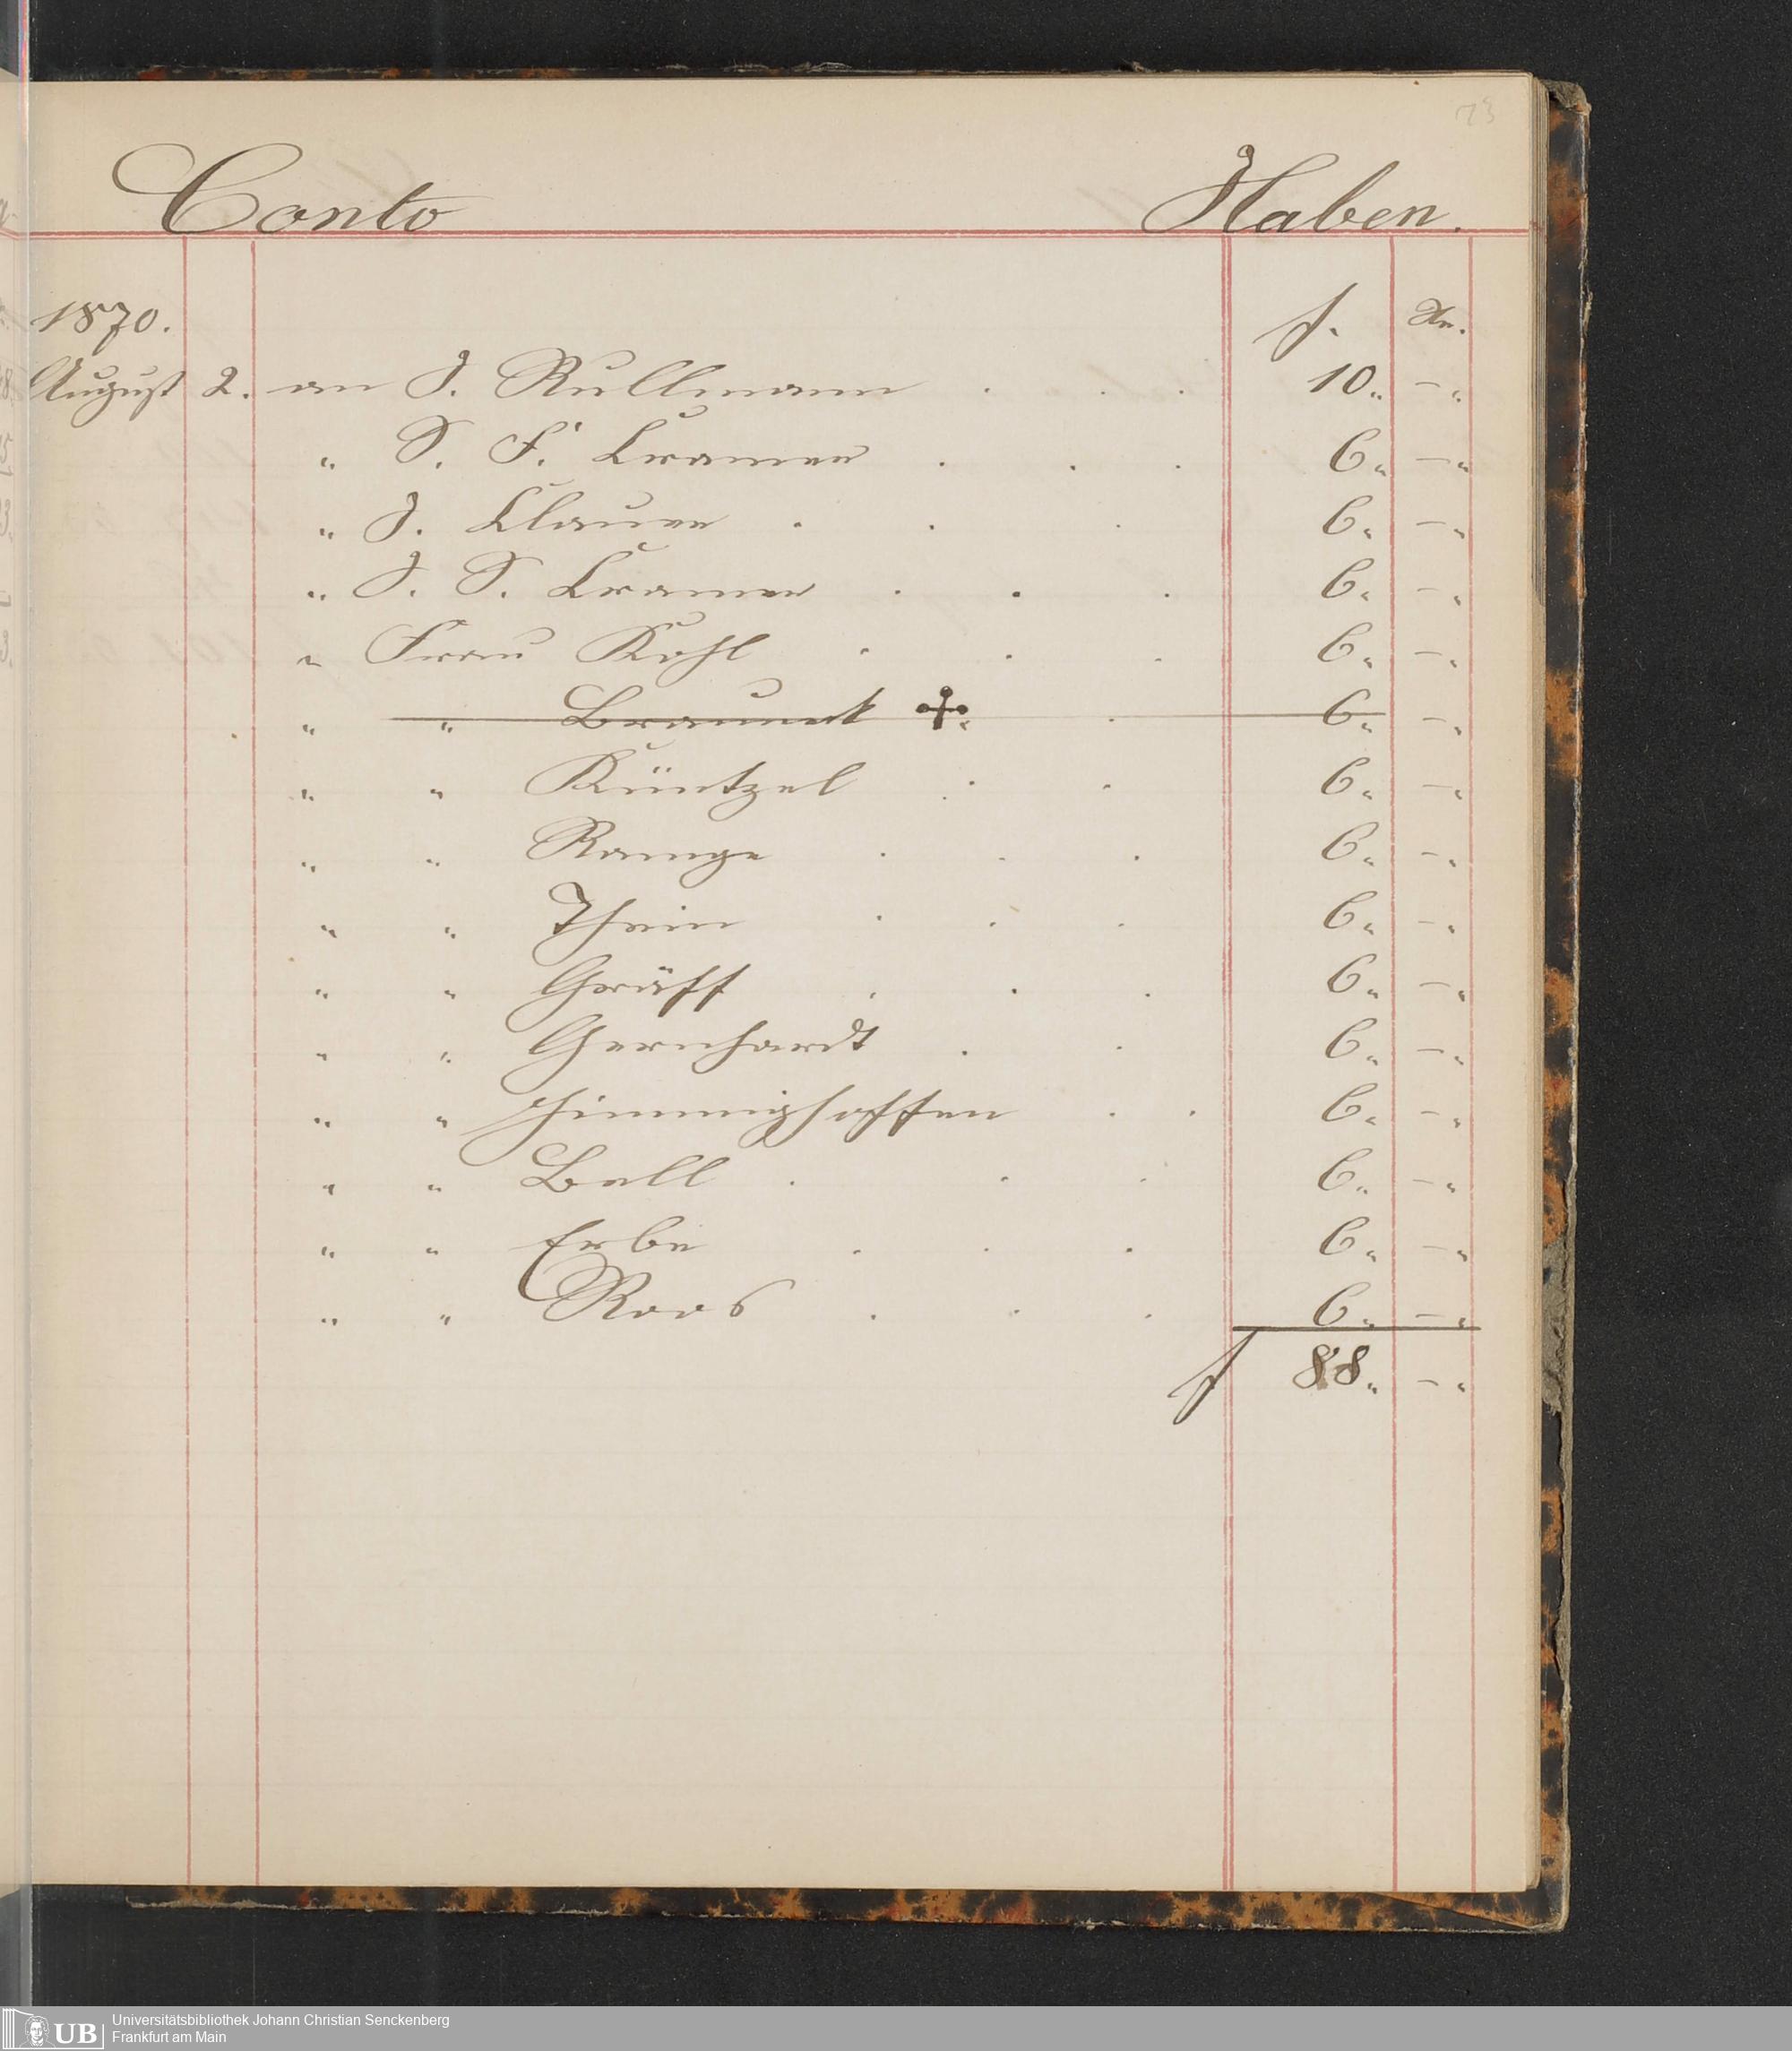 73
Conto Haben.
1870. f. Xr.
August 2. an J. Rullmann . . . 10." - "
" S. F. Cramer . . . 6." - "
" J. Clauer . . . 6." - "
" J. S. Cramer . . . 6." - "
" Frau Kohl . . . 6." - "
" " Brauneck ✝. . 6." - "
" " Küntzel . . 6." - "
" " Ramge . . . 6." - "
" " Thein . . . 6." - "
" " Gräff . . . 6." - "
" " Gernhardt . . 6." - "
" " Himmighoffen . . 6." - "
" " Bell . . . 6." - "
" " Erbe . . . 6." - "
" " Roos . . . 6." - "
f 88." - "
UB
Universitätsbibliothek Johann Christian Senckenberg
Frankfurt am Main